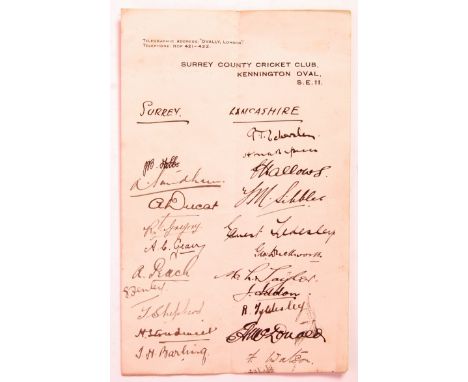 TELEGRAPHIC ADDRESS, "OVALLY, LONDON".
TELEPHONE HOP 421-422.
SURREY COUNTY CRICKET CLUB,
KENNINGTON OVAL,
S.E.11.
SURREY. LANCASHIRE
J B Hobbs C Hallows.
A Sandham
A Ducat
Ernest Tyldesley
A. C. Geary Geo Duckworth
A. Peach M. L. Taylor
E. Fenley J. Iddon
T Shepherd R. Tyldesley
H. Strudwick E A McDonald
T. H. Barling F Watson